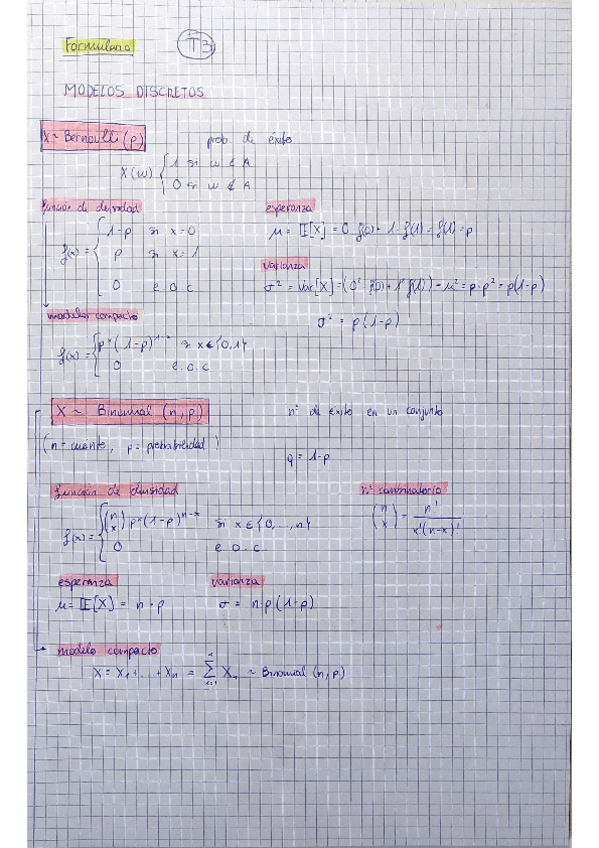 Formulario T3
MODELOS DISCRETOS
X ~ Bernoulli (p) prob. de éxito
X(ω) { 1 si ω ∉ A
0 si ω ∉ A
función de densidad
f(x) = { 1-p si x=0
p si x=1
0 e.o.c
esperanza
μ = E[X] = 0·f(0) + 1·f(1) = f(1) = p
varianza
σ² = Var[X] = (0² f(0) + 1² f(1)) - μ² = p - p² = p(1-p)
σ² = p(1-p)
modelo compacto
f(x) = { p^x (1-p)^{1-x} si x∈{0,1}
0 e.o.c
X ~ Binomial (n,p) nº de éxito en un conjunto
(n = cuante, p = probabilidad)
q = 1-p
función de densidad
f(x) = { (n x) p^x (1-p)^{n-x} si x∈{0,...,n}
0 e.o.c.
nº combinatorio
(n x) = n! / x!(n-x)!
esperanza
μ = E[X] = n·p
varianza
σ = n·p(1-p)
modelo compacto
X = X₁+...+Xn = Σ X ~ Binomial (n,p)